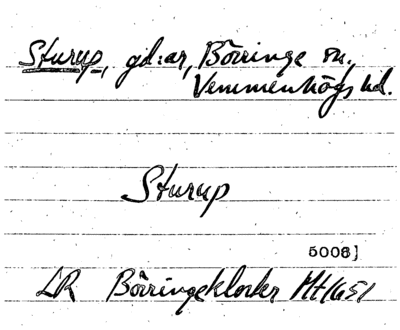 Sturup, gd:ar, Börringe sn.,
Vemmenhögs hd.
Sturup
5006]
LR Börringekloster Mt 1651